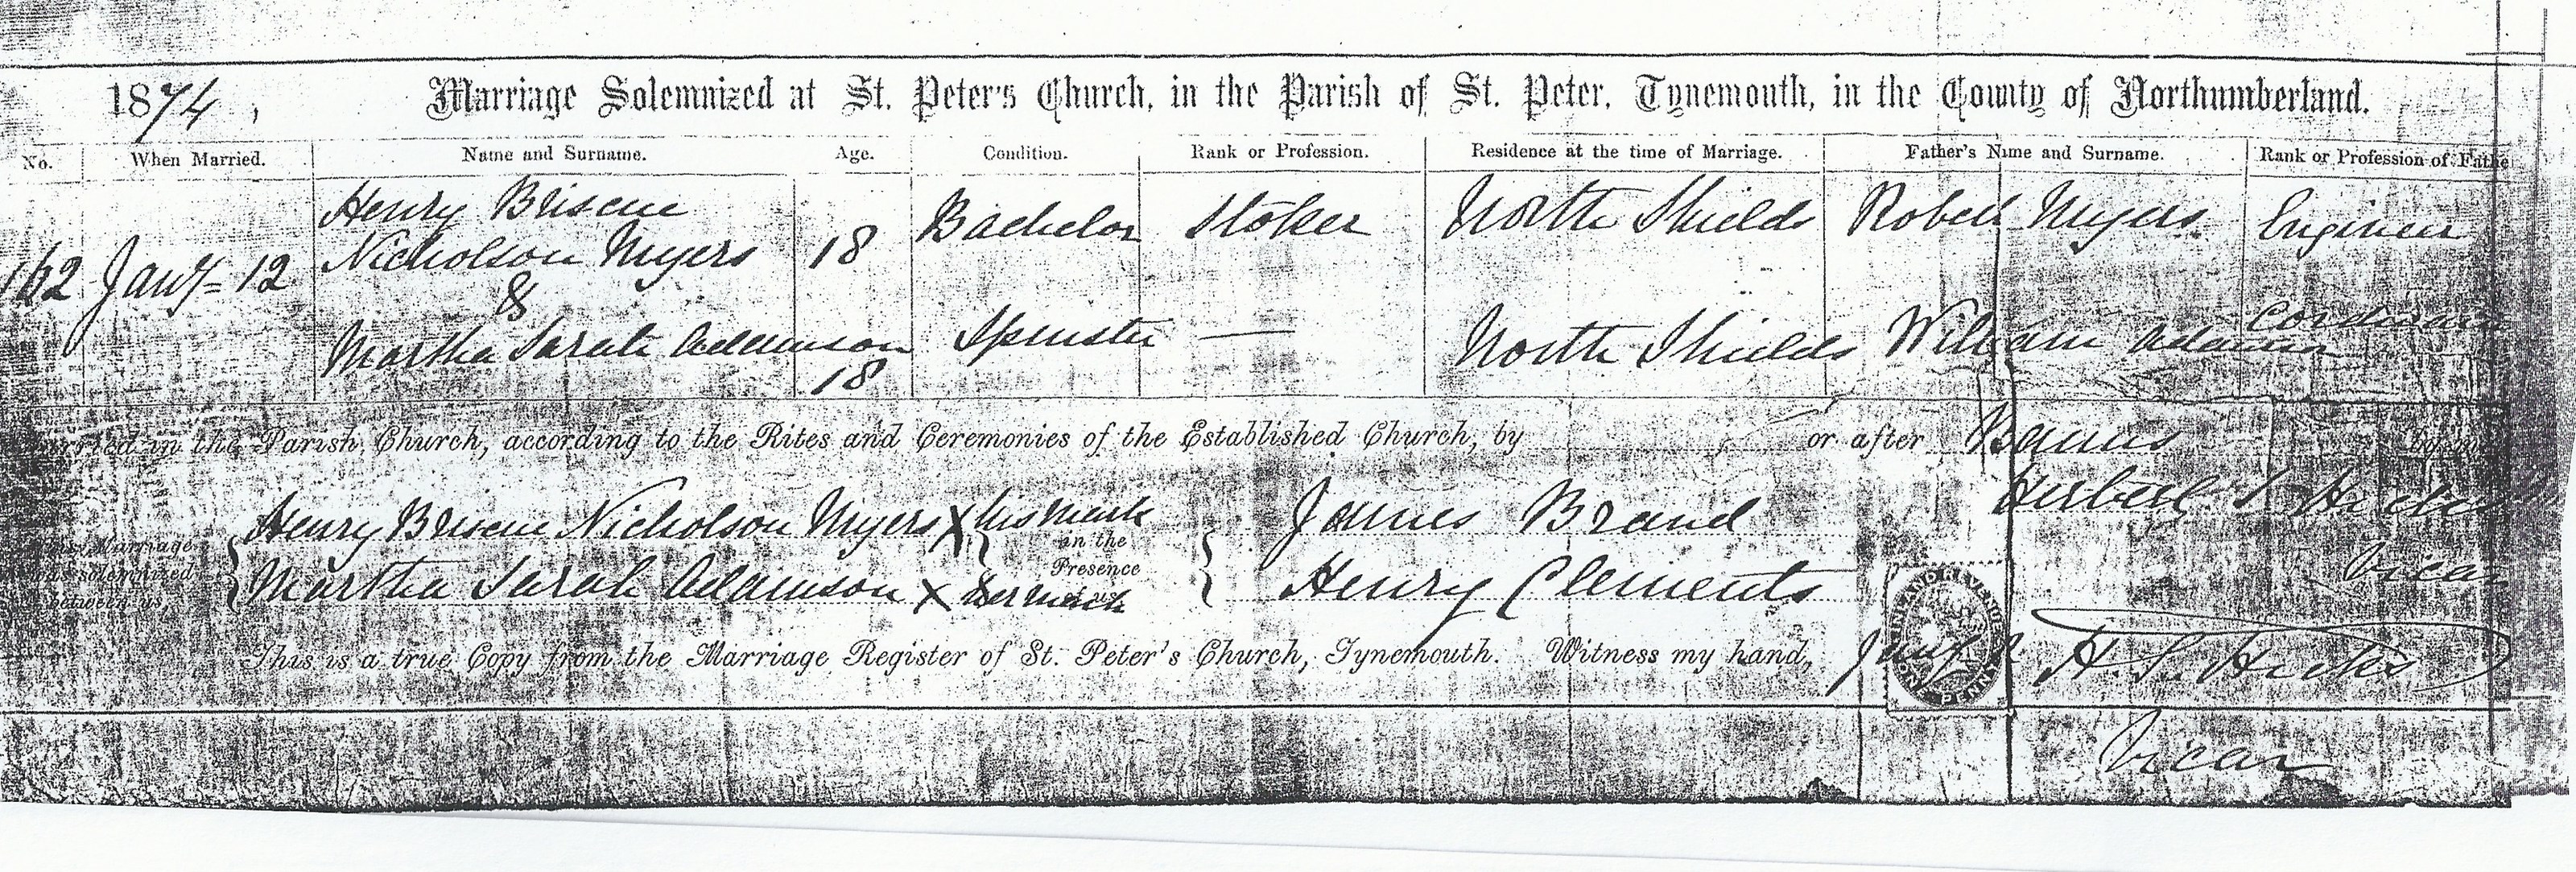 1874, Marriage Solemnized at St. Peter's Church, in the Parish of St. Peter, Tynemouth, in the County of Northumberland.
No. When Married. Name and Surname. Age. Condition. Rank or Profession. Residence at the time of Marriage. Father's Name and Surname. Rank or Profession of Fathe
162 Jany = 12 Henry Briscue Nicholson Myers 18 Bachelor Stoker North Shields Robert Myers Engineer
&
Martha Sarah Adamson 18 Spinster — North Shields William Adamson
Married in the Parish Church, according to the Rites and Ceremonies of the Established Church, by or after Banns
Herbert S Hicks
Vicar
This Marriage was solemnized between us, Henry Briscue Nicholson Myers X his mark in the Presence of us, James Brand
Martha Sarah Adamson X Her mark Henry Clements
This is a true Copy from the Marriage Register of St. Peter's Church, Tynemouth. Witness my hand, H. S. Hicks
INLAND REVENUE
ONE PENNY
Vicar